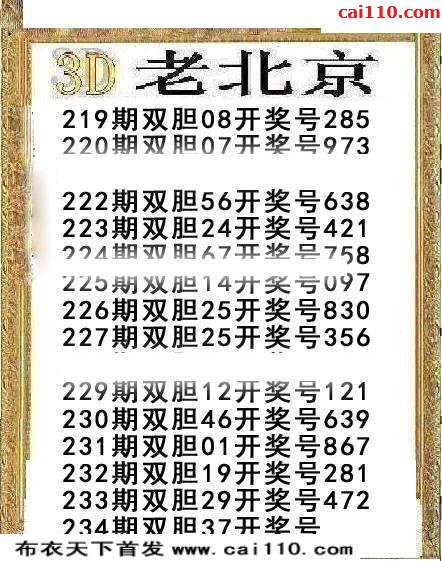 cai110.com
3D 老北京
219期双胆08开奖号285
220期双胆07开奖号973
222期双胆56开奖号638
223期双胆24开奖号421
224期双胆67开奖号758
225期双胆14开奖号097
226期双胆25开奖号830
227期双胆25开奖号356
229期双胆12开奖号121
230期双胆46开奖号639
231期双胆01开奖号867
232期双胆19开奖号281
233期双胆29开奖号472
234期双胆37开奖号
布衣天下首发 www.cai110.com